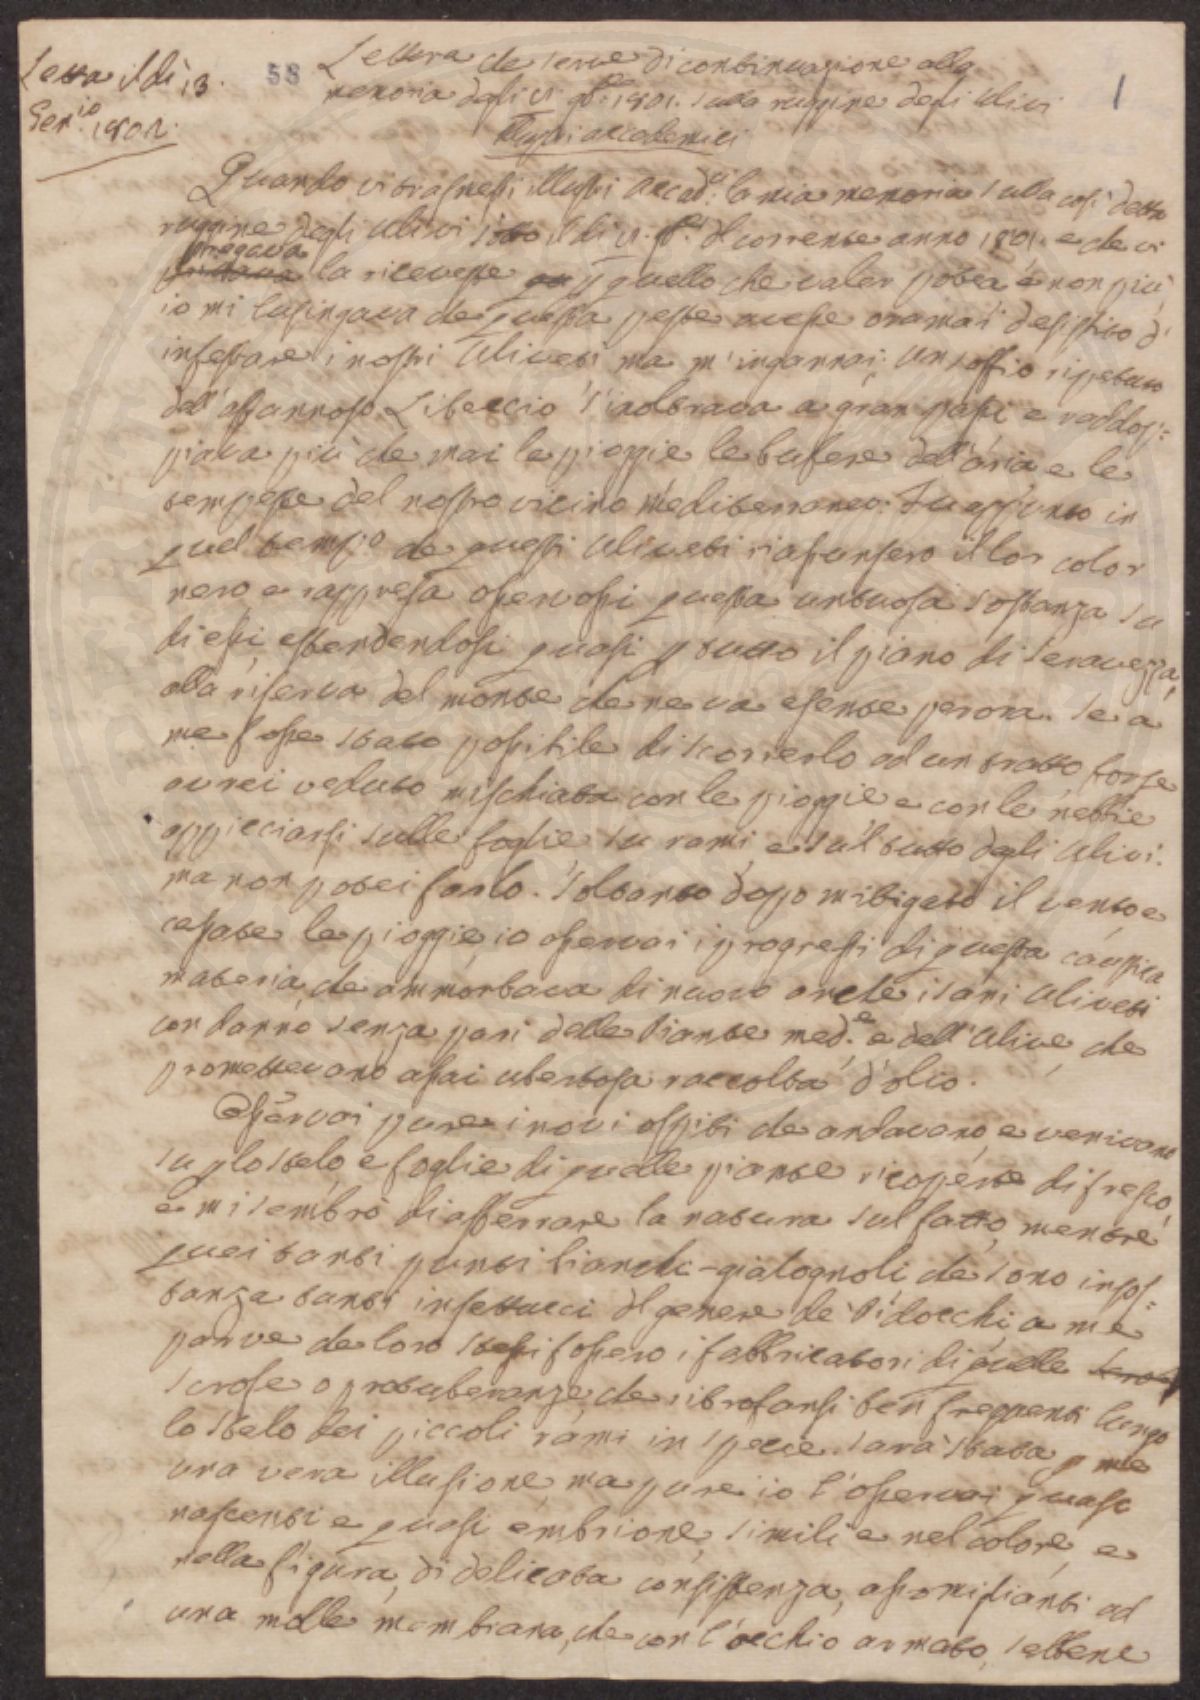 Letta il dì 13.
Gen.io 1802.
58
1
Lettera che serve di continuazione alla
memoria degli vi. 1801. sulla ruggine degli Ulivi
Illustri accademici
Quando vi trasmessi illustri Accad.ci la mia memoria sulla così detta
ruggine degli Ulivi sotto il di vi. corrente anno 1801. e che vi
pregava la riceveste p quello che valer potea e non più,
io mi lusingava che questa peste avesse oramai desistito d'
infestare i nostri Uliveti ma m'ingannai. Un soffio ripetuto
dell'affannoso Libeccio s'inoltrava a gran passi e raddop=
piava più che mai le pioggie le bufere dell'aria e le
tempeste del nostro vicino Mediterraneo. Fu appunto in
quel tempo che questi Uliveti riassunsero il lor color
nero e rappresa osservossi questa untuosa sostanza su
di essi, estendendosi quasi p tutto il piano di Seravezza,
alla riserva del monte che ne va esente perora. Se a
me fosse stato possibile di scorrerlo ad un tratto forse
avrei veduto mischiata con le pioggie e con le nebbie
appicciarsi sulle foglie su rami, e sul tutto degli Ulivi.
ma non potei farlo. Soltanto dopo mitigato il vento e
cessate le pioggie, io osservai i progressi di questa caustica
materia, che ammorbava di nuovo anche i sani Uliveti
con danno senza pari delle Piante med.e e dell'Ulive che
promettevano assai ubertosa raccolta d'olio.
Osservai pure i novi ospiti che andavano, e venivano
su p lo stelo, e foglie di quelle piante ricoperte di fresco,
e mi sembrò di afferrare la natura sul fatto, mentre
quei tanti punti bianchi-gialognoli che sono in sos=
tanza tanti insettucci del genere de' Pidocchi, a me
parve che loro stessi fossero i fabbricatori di quelle
scrofe o protuberanze, che ritrovansi ben frequenti lungo
lo stelo dei piccoli rami in specie. Sarà stata p me
una vera illusione, ma pure io l'osservai quasi
nascenti e quasi embrione, simili e nel colore, e
nella figura, di delicata consistenza, assomiglianti ad
una molle membrana, che con l'occhio armato, sebbene